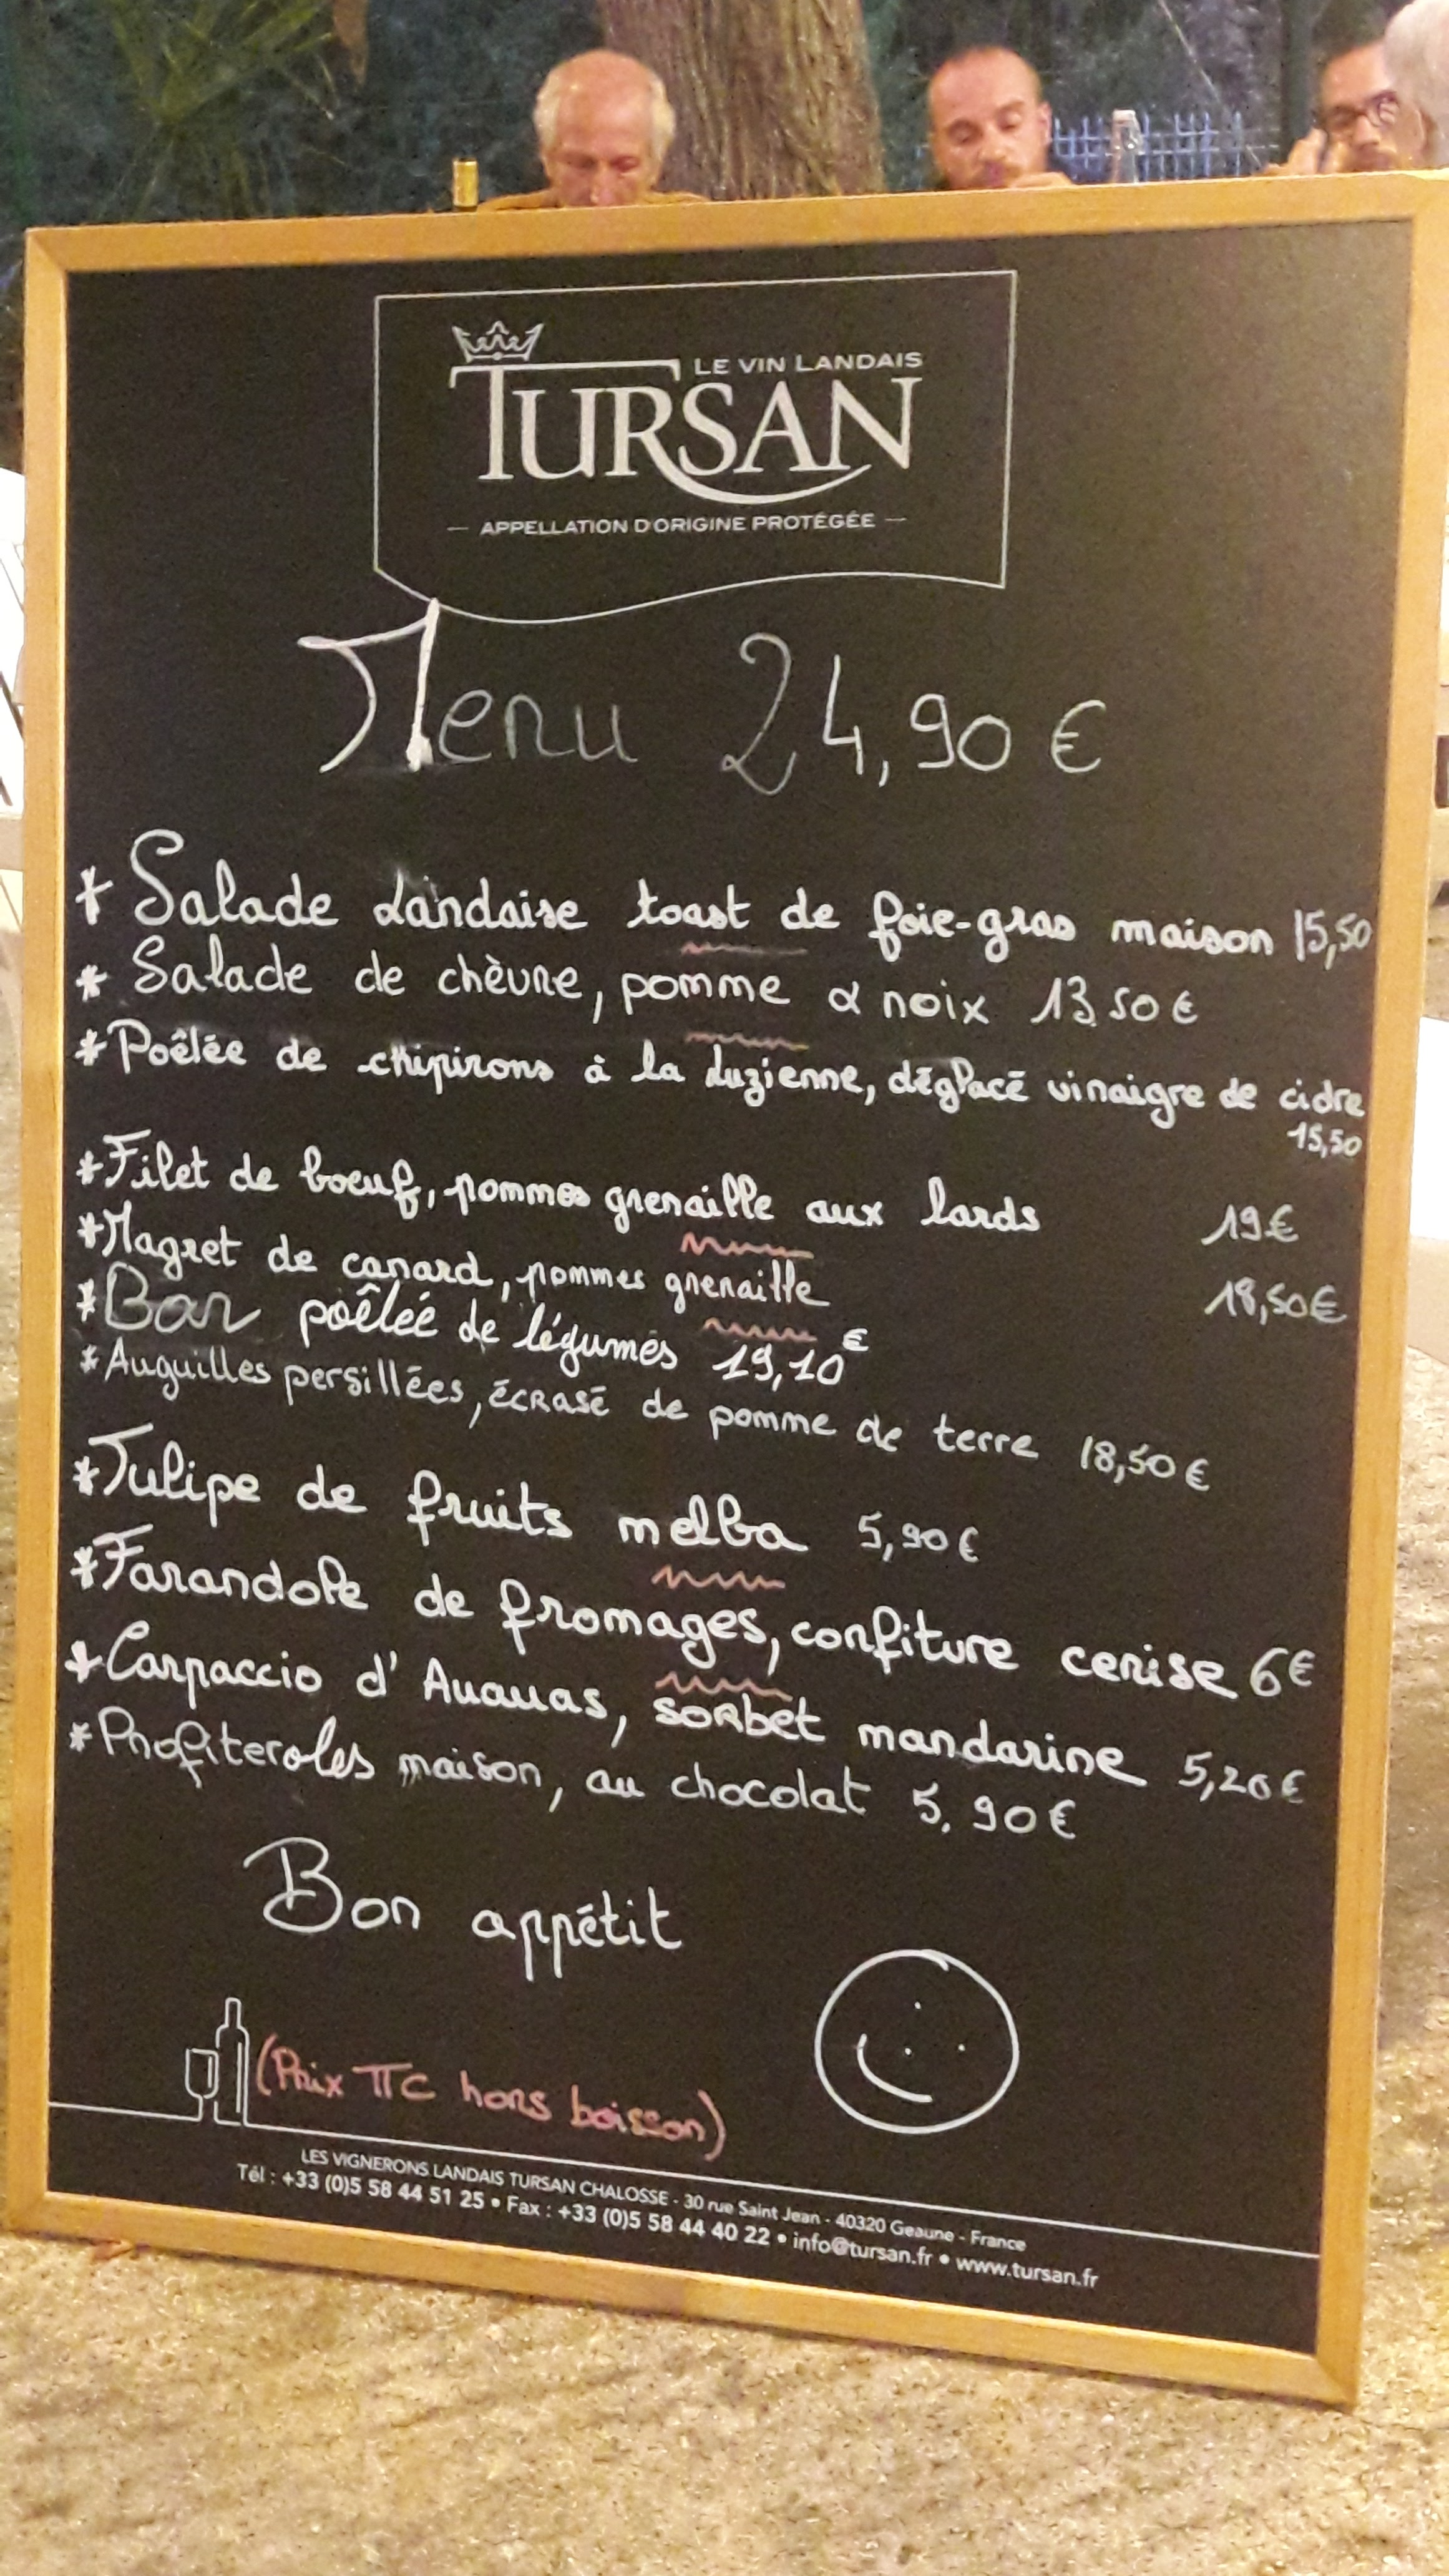 LE VIN LANDAIS
TURSAN
— APPELLATION D'ORIGINE PROTÉGÉE —
Menu 24,90 €
* Salade Landaise toast de foie-gras maison 15,50
* Salade de chèvre, pomme & noix 13.50 €
* Poêlée de chipirons à la luzienne, déglacé vinaigre de cidre
15,50
* Filet de boeuf, pommes grenaille aux lards 19 €
* Magret de canard, pommes grenaille 18,50 €
* Bar poêlée de légumes 19,10 €
* Auguilles persillées, écrasé de pomme de terre 18,50 €
* Tulipe de fruits melba 5,90 €
* Farandole de fromages, confiture cerise 6 €
* Carpaccio d'Ananas, sorbet mandarine 5,20 €
* Profiteroles maison, au chocolat 5.90 €
Bon appétit
(Prix TTC hors boisson)
LES VIGNERONS LANDAIS TURSAN CHALOSSE - 30 rue Saint Jean - 40320 Geaune - France
Tél : +33 (0)5 58 44 51 25 • Fax : +33 (0)5 58 44 40 22 • info@tursan.fr • www.tursan.fr